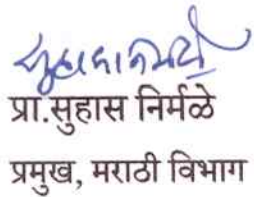 प्रा.सुहास निर्मळे
प्रमुख, मराठी विभाग